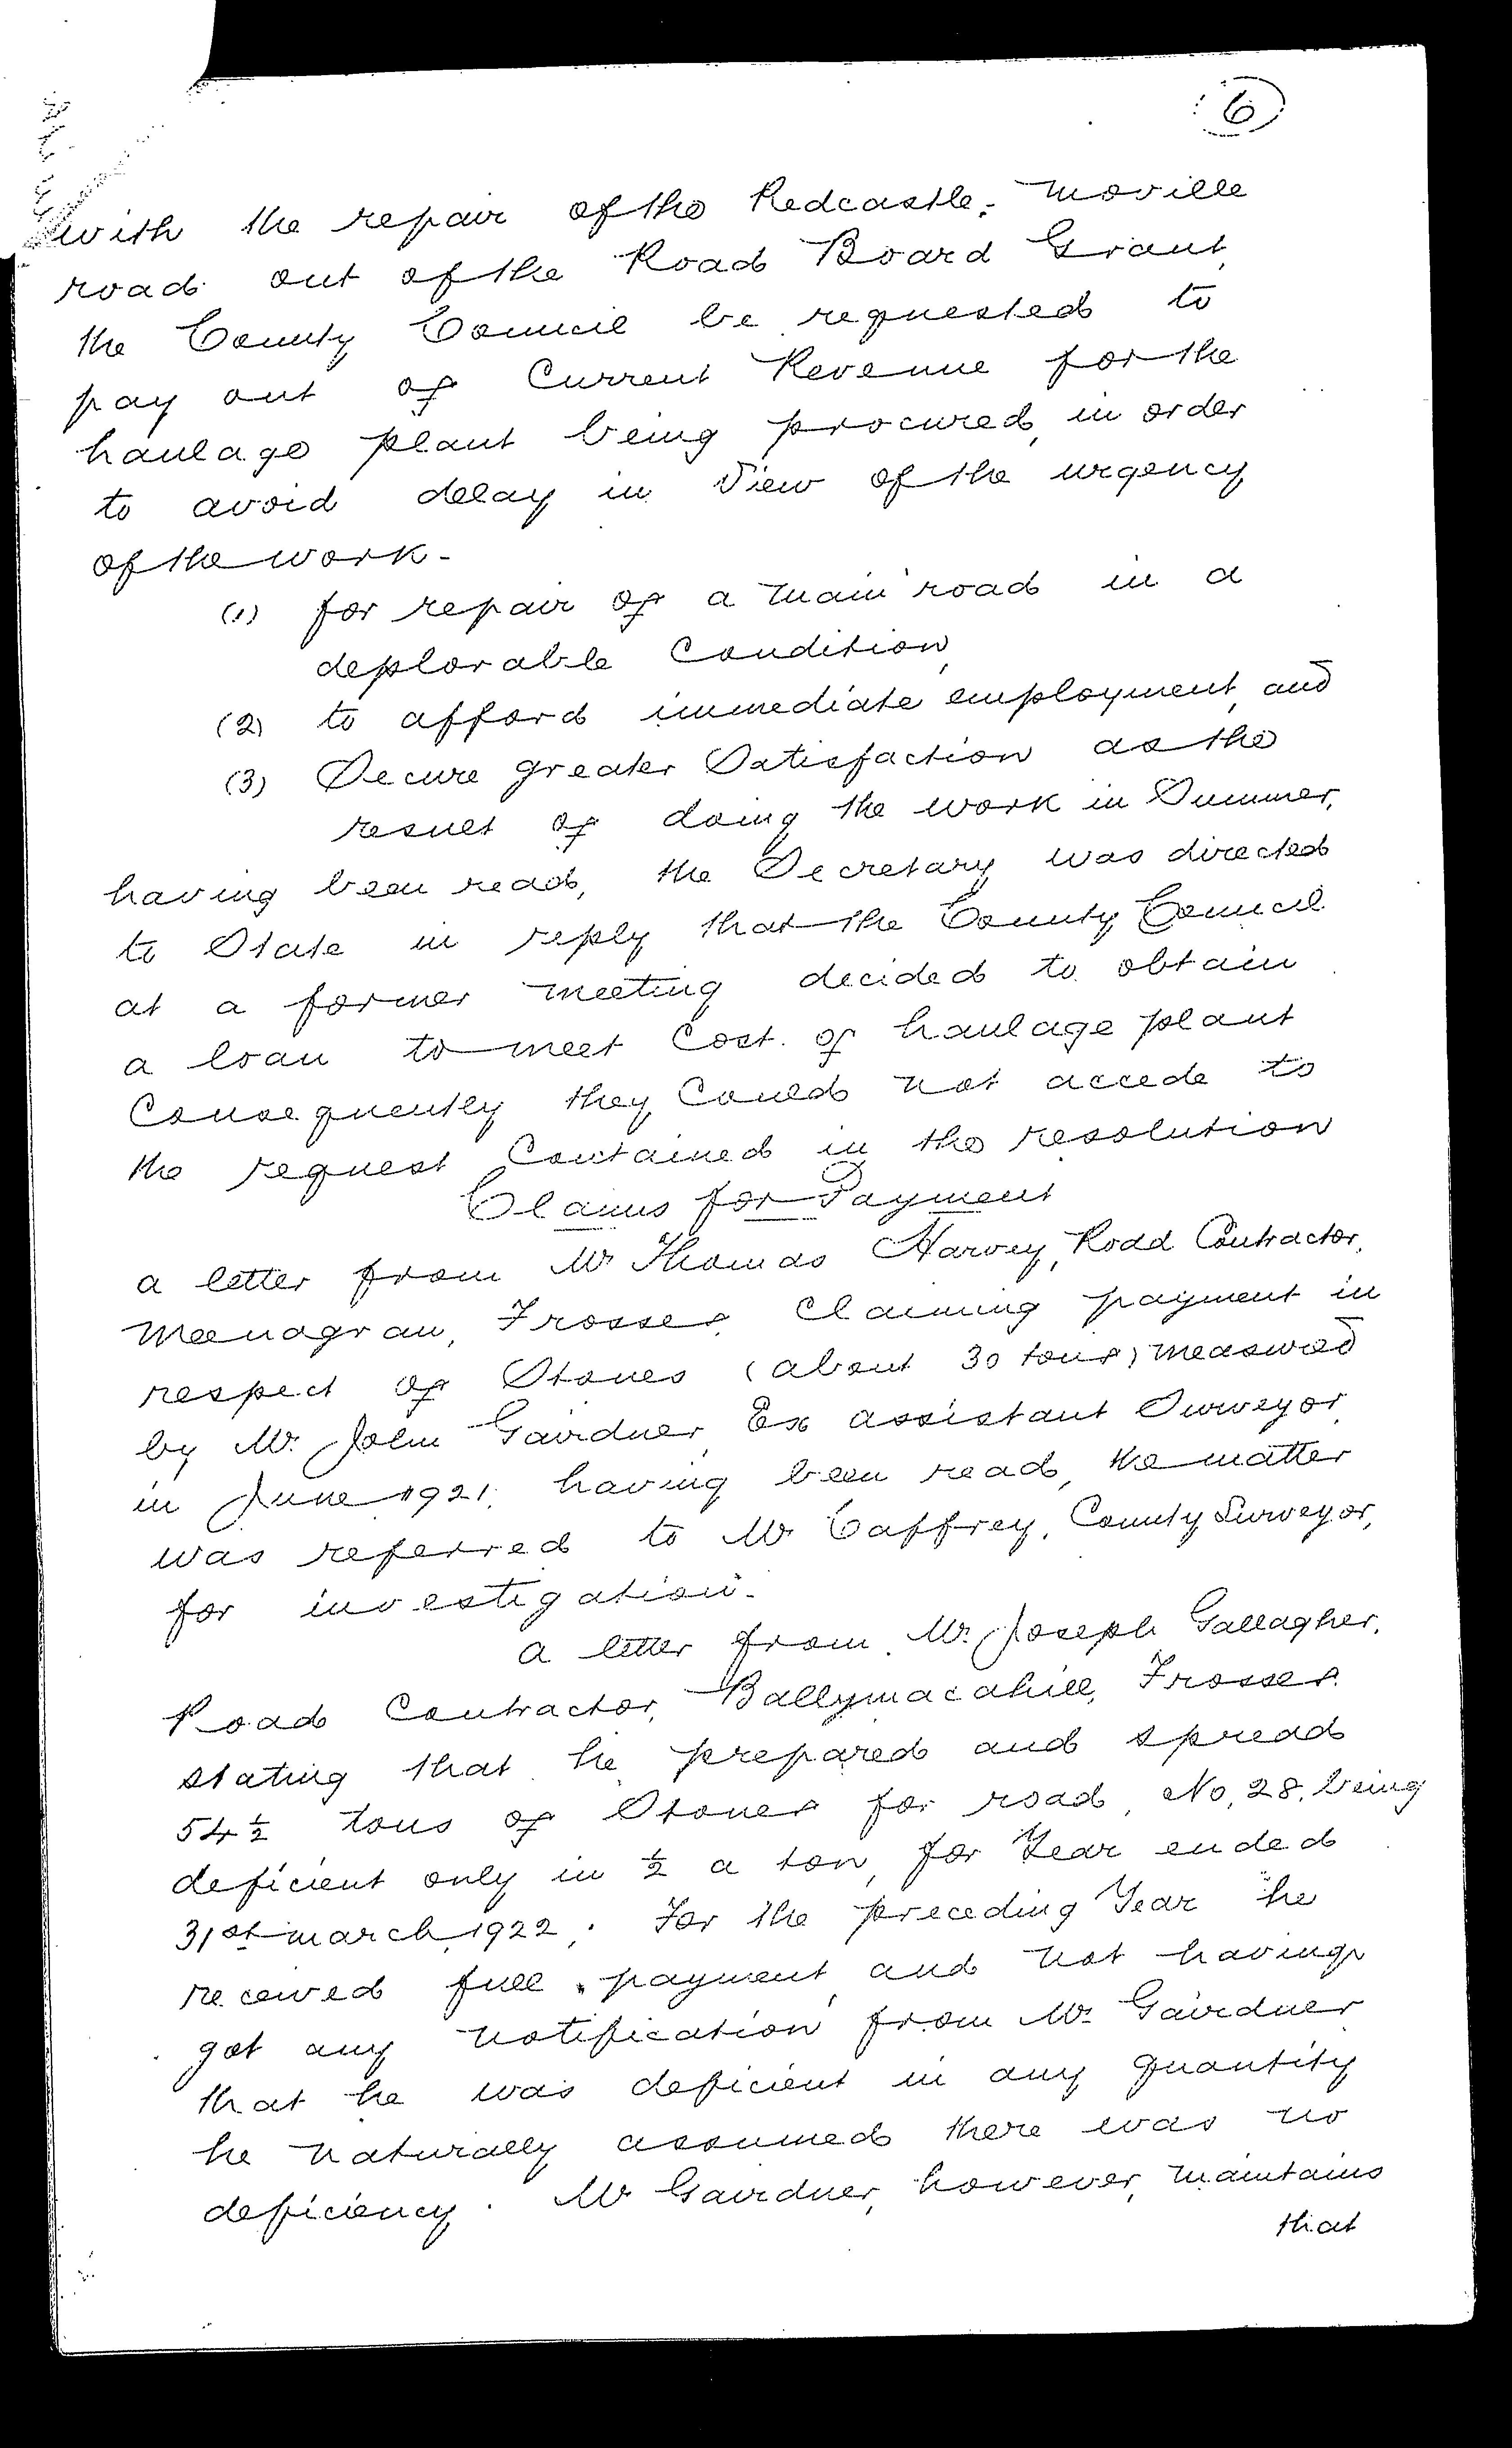 6
with the repair of the Redcastle - Moville
road out of the Road Board Grant,
the County Council be requested to
pay out of Current Revenue for the
haulage plant being procured, in order
to avoid delay in view of the urgency
of the work -
(1) for repair of a main road in a
deplorable Condition,
(2) to afford immediate employment, and
(3) Secure greater Satisfaction as the
result of doing the work in Summer,
having been read, the Secretary was directed
to State in reply that the County Council
at a former meeting decided to obtain
a loan to meet Cost of haulage plant
Consequently they Could not accede to
the request Contained in the resolution
Claims for Payment
a letter from Mr Thomas Harvey, Road Contractor,
Meenagran, Frosses, Claiming payment in
respect of Stones (about 30 tons) measured
by Mr. John Gairdner, Ex assistant Surveyor,
in June 1921, having been read, the matter
was referred to Mr Caffrey, County Surveyor,
for investigation.
a letter from Mr. Joseph Gallagher,
Road Contractor, Ballymacahill, Frosses.
stating that he prepared and spread
54½ tons of Stones for road, No, 28, being
deficient only in ½ a ton, for Year ended
31st march, 1922; For the preceding Year he
received full payment, and not having
got any notification from Mr Gairdner
that he was deficient in any quantity
he naturally assumed there was no
deficiency. Mr Gairdner, however, maintains
that